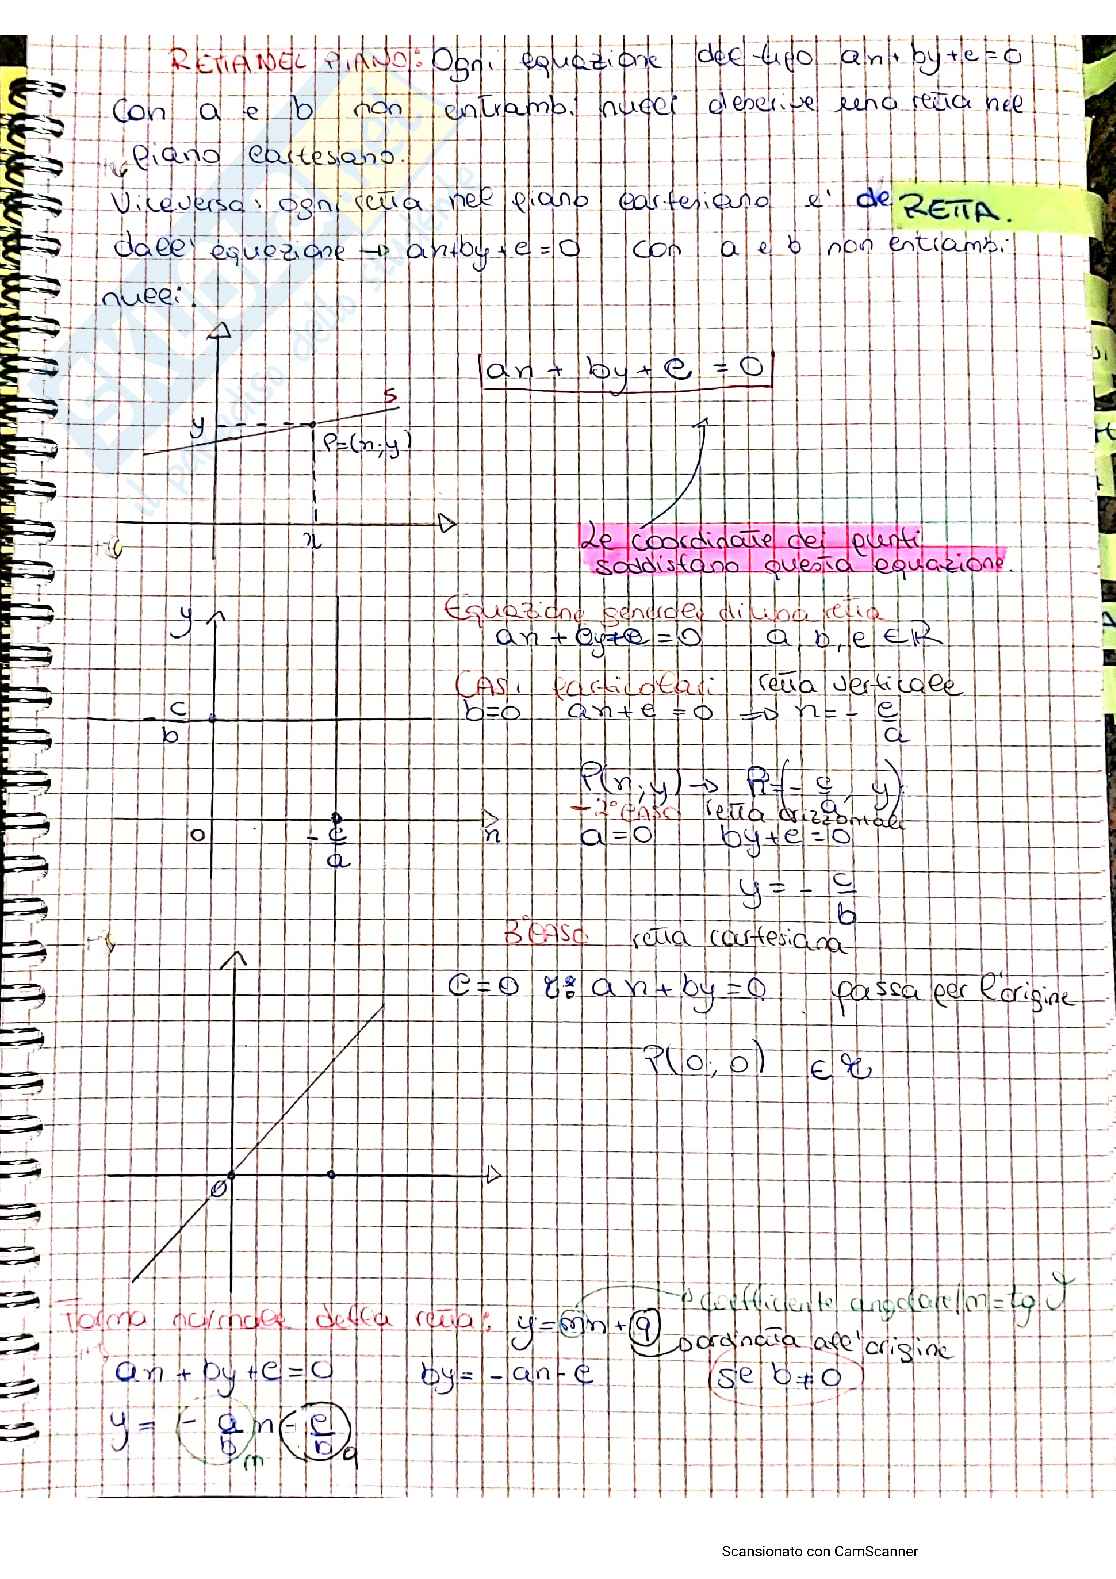 RETTA NEL PIANO: Ogni equazione del tipo ax+by+c=0
con a e b non entrambi nulli descrive una retta nel
piano cartesiano.
Viceversa: ogni retta nel piano cartesiano e' de
RETTA.
dall'equazione → ax+by+c=0 con a e b non entrambi
nulli.
ax + by + c = 0
s
y
P=(x;y)
x
Le coordinate dei punti
soddisfano questa equazione.
y
Equazione generale di una retta
ax+by+c=0 a, b, c ∈ R
Casi particolari retta verticale
b=0 ax+c=0 ⇒ x=-c/a
-c/b
P(x;y) → P=(-c/a, y)
-2°CASO retta orizzontale
a=0 by+c=0
0
-c/a
x
y=-c/b
3°CASO retta cartesiana
c=0 r: ax+by=0 passa per l'origine
P(0;0) ∈ r
0
Forma normale della retta: y=mx+q
coefficiente angolare/m=tg γ
ordinata all'origine
ax+by+c=0 by=-ax-c se b≠0
y=-a/b x -c/b
m q
Scansionato con CamScanner